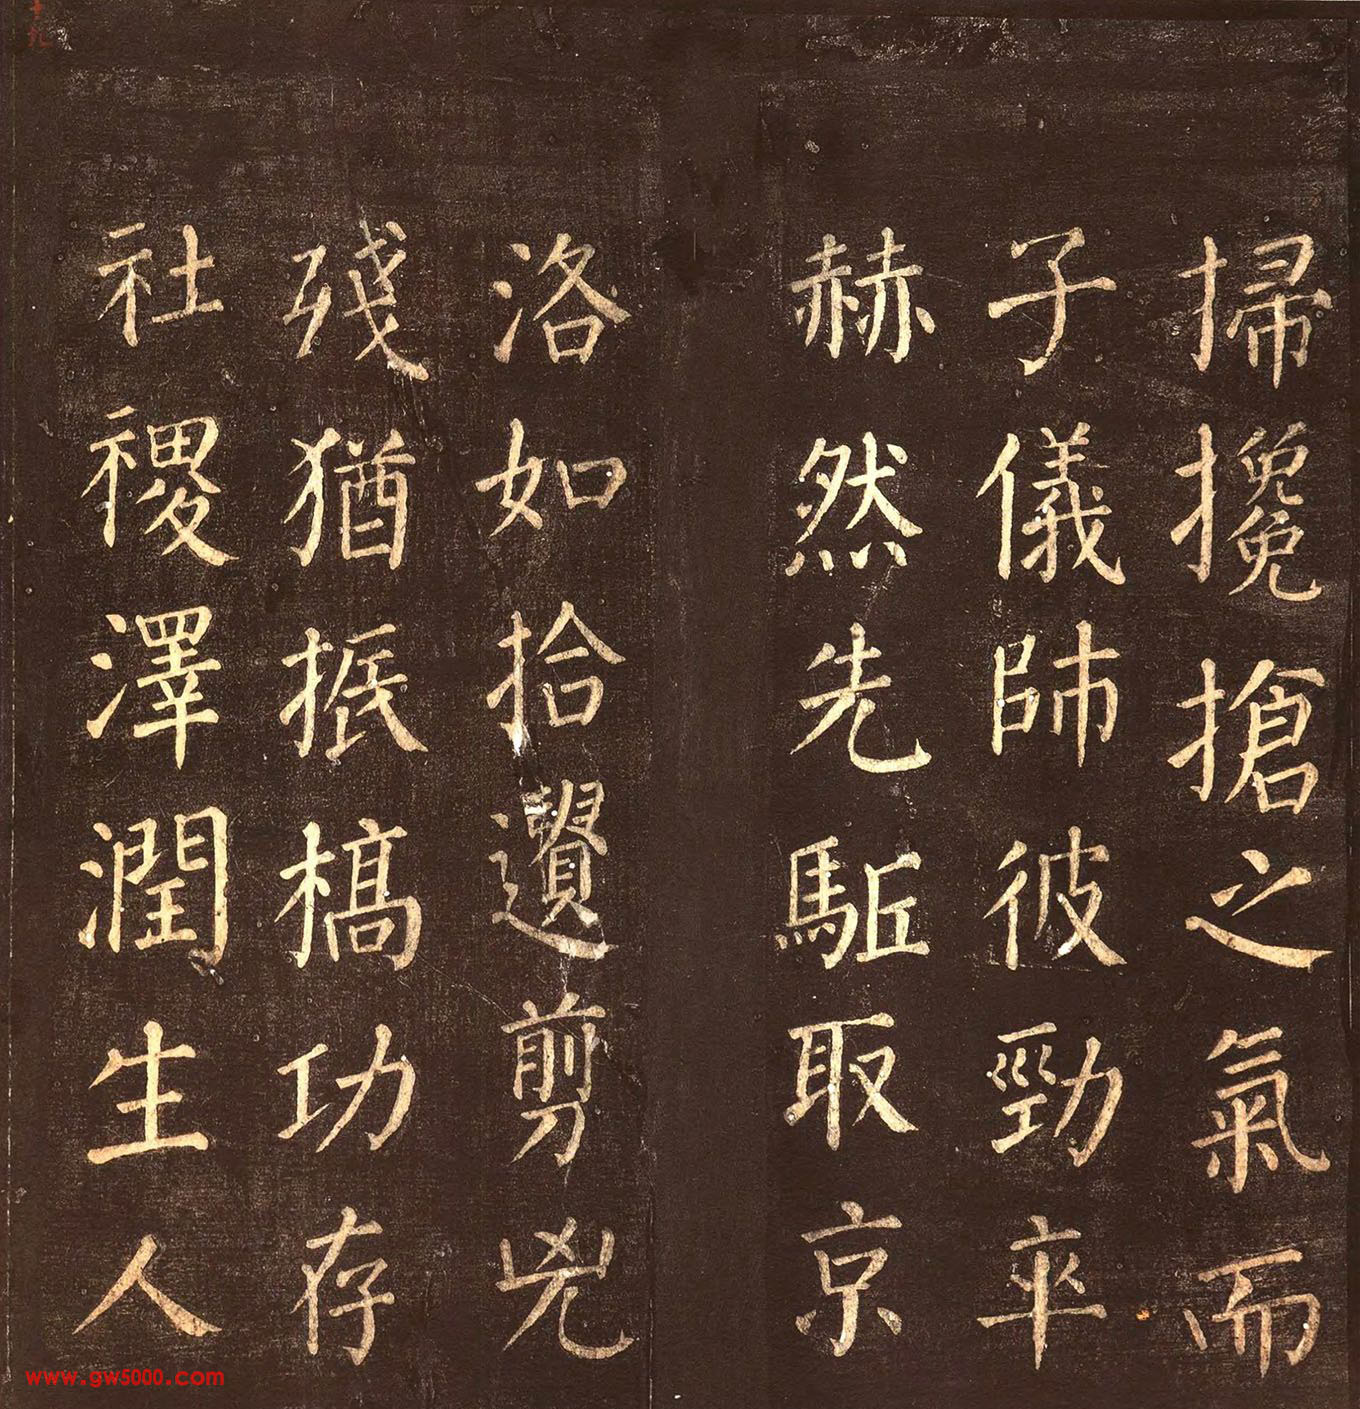 掃攙搶之氣而
子儀師彼勁卒
赫然先駈取京
洛如拾遺剪兇
殘猶振槁功存
社稷澤潤生人
www.gw5000.com